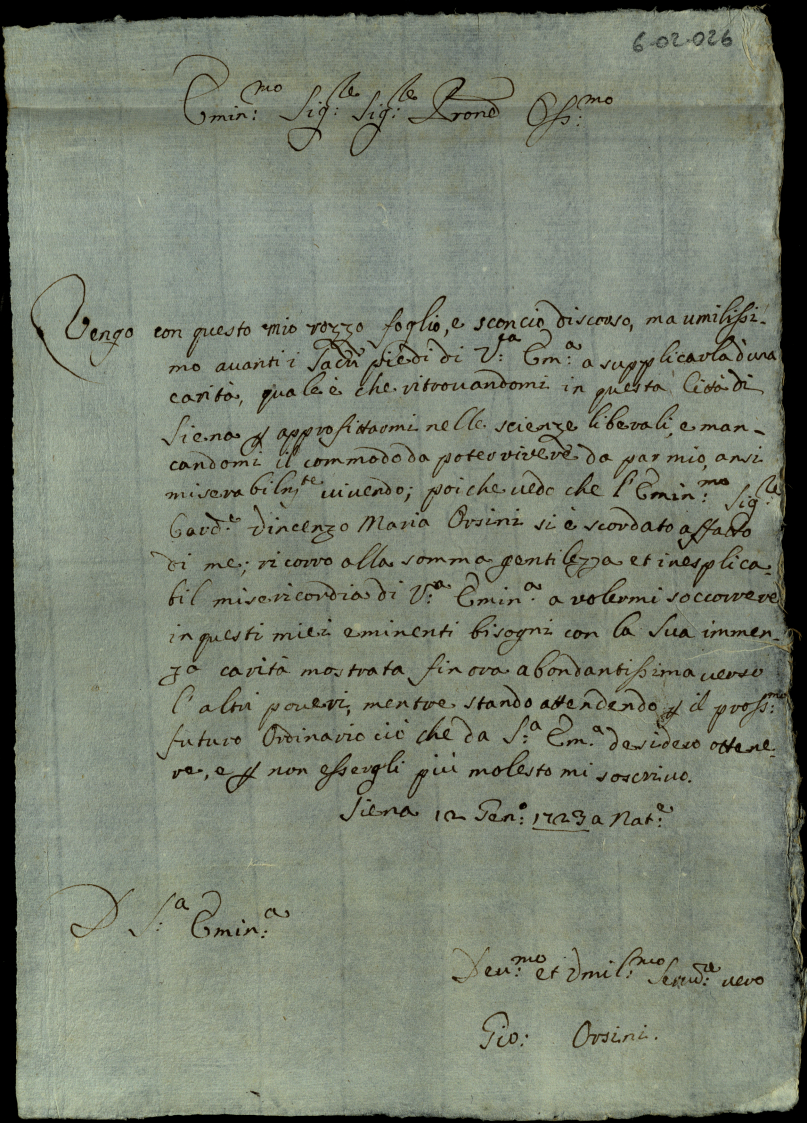 6-02-026
Emin:mo Sig:re Sig:re Prone Oss:mo
Vengo con questo mio rozzo foglio, e sconcio discorso, ma umilissi-
mo auanti i Sacri piedi di V:ra Em:a a supplicarla d'una
carità, quale è che ritrouandomi in questa Città di
Siena p approfittarmi nelle scienze liberali, e man-
candomi il commodo da poter vivere da par mio, ansi
miserabilm:te vivendo; poiche vedo che l'Emin:mo Sig:re
Card:e Vincenzo Maria Orsini si è scordato affatto
di me; ricorro alla somma gentilezza et inesplica-
bil misericordia di V:a Emin:a a volermi soccorrere
in questi miei eminenti bisogni con la Sua immen-
za carità mostrata fin ora abondantissima verso
l'altri poveri, mentre stando attendendo p il pross:mo
futuro Ordinario ciò che da S:a Em:a desidero ottene-
re, e p non essergli più molesto mi soscrivo.
Siena 12 Gen:o 1723 a Nat:e
D S:a Emin:a
Deu:mo et Vmil:mo Seruid:re uero
Gio: Orsini.